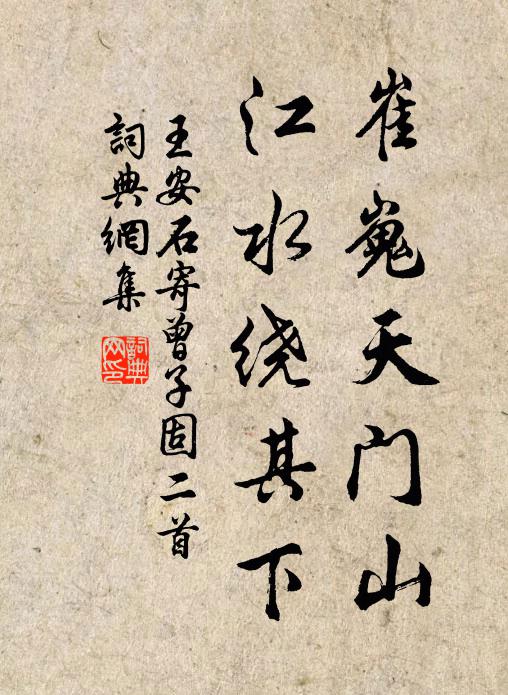 崔嵬天门山
江水绕其下
王安石寄曾子固二首
詞典網集
詞典網印